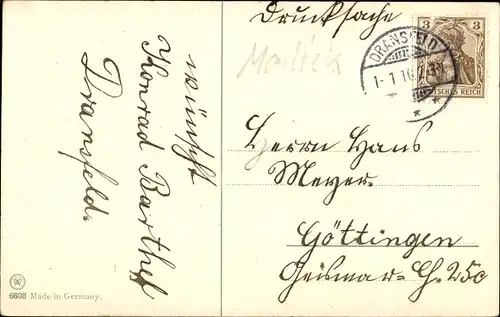 Drucksache
wünscht
Konrad Barthel
Dransfeld.
Herrn Hans
Meyer.
Göttingen
Geismar-Ch. 25c
DRANSFELD
1-1 10
3 3
DEUTSCHES REICH
6608 Made in Germany.